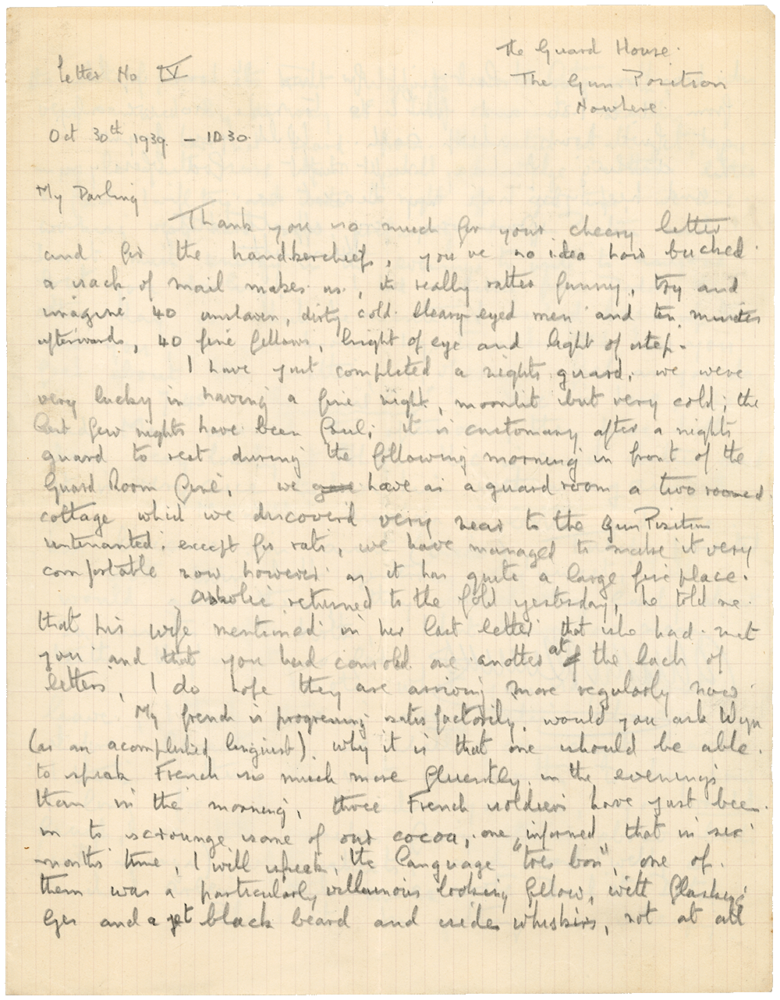 The Guard House.
Letter No IV
The Gun Position
Nowhere.
Oct 30th 1939. – 10.30.
My Darling
Thank you so much for your cheery letter
and for the handkerchiefs, you've no idea how bucked
a sack of mail makes us, its really rather funny, try and
imagine 40 unshaven, dirty cold bleary-eyed men and ten minutes
afterwards, 40 fine fellows, bright of eye and light of step.
I have just completed a nights guard, we were
very lucky in having a fine night, moonlit but very cold; the
last few nights have been foul; it is customary after a nights
guard to rest during the following morning in front of the
Guard Room fire, we have as a guard room a two roomed
cottage which we discovered very near to the Gun Position
untenanted except for rats, we have managed to make it very
comfortable now however as it has quite a large fire place.
returned to the fold yesterday, he told me
that his wife mentioned in her last letter that she had met
you and that you had consoled one another at the lack of
letters, I do hope they are arriving more regularly now
My french is progressing satisfactorily, would you ask Wyn
(as an acomplished linguist) why it is that one should be able
to speak French so much more fluently in the evenings
than in the morning, three French soldiers have just been
in to scrounge some of our cocoa, one informed that in six
months time, I will speak the language "tres bon", one of
them was a particularly villainous looking fellow, with flashing
eyes and a jet black beard and side whiskers, not at all